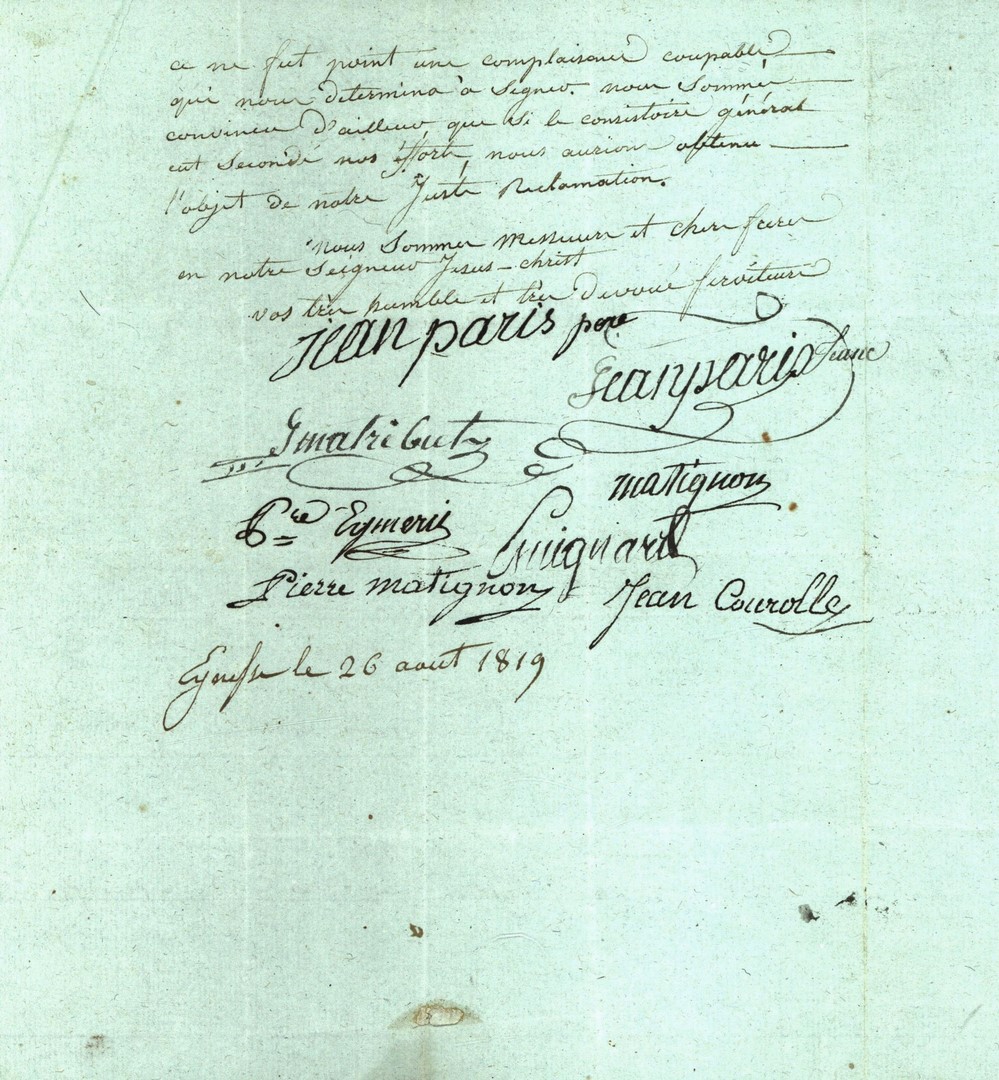 ce ne fut point une complaisance coupable
qui nous determina à Signer. nous Sommes
convincu d'ailleurs que Si le consistoire général
eut Secondé nos éfforts, nous aurions obtenu
l'objet de notre Juste Reclamation.
nous Sommes Messieurs et chers freres
en notre Seigneur Jesus-christ
vos très humble et très devoué serviteurs
Jean paris pere
Jean paris
Matignon
Pre Eymeric
Guignard
Pierre Matignon
Jean Courolle
Eynesse le 26 aout 1819